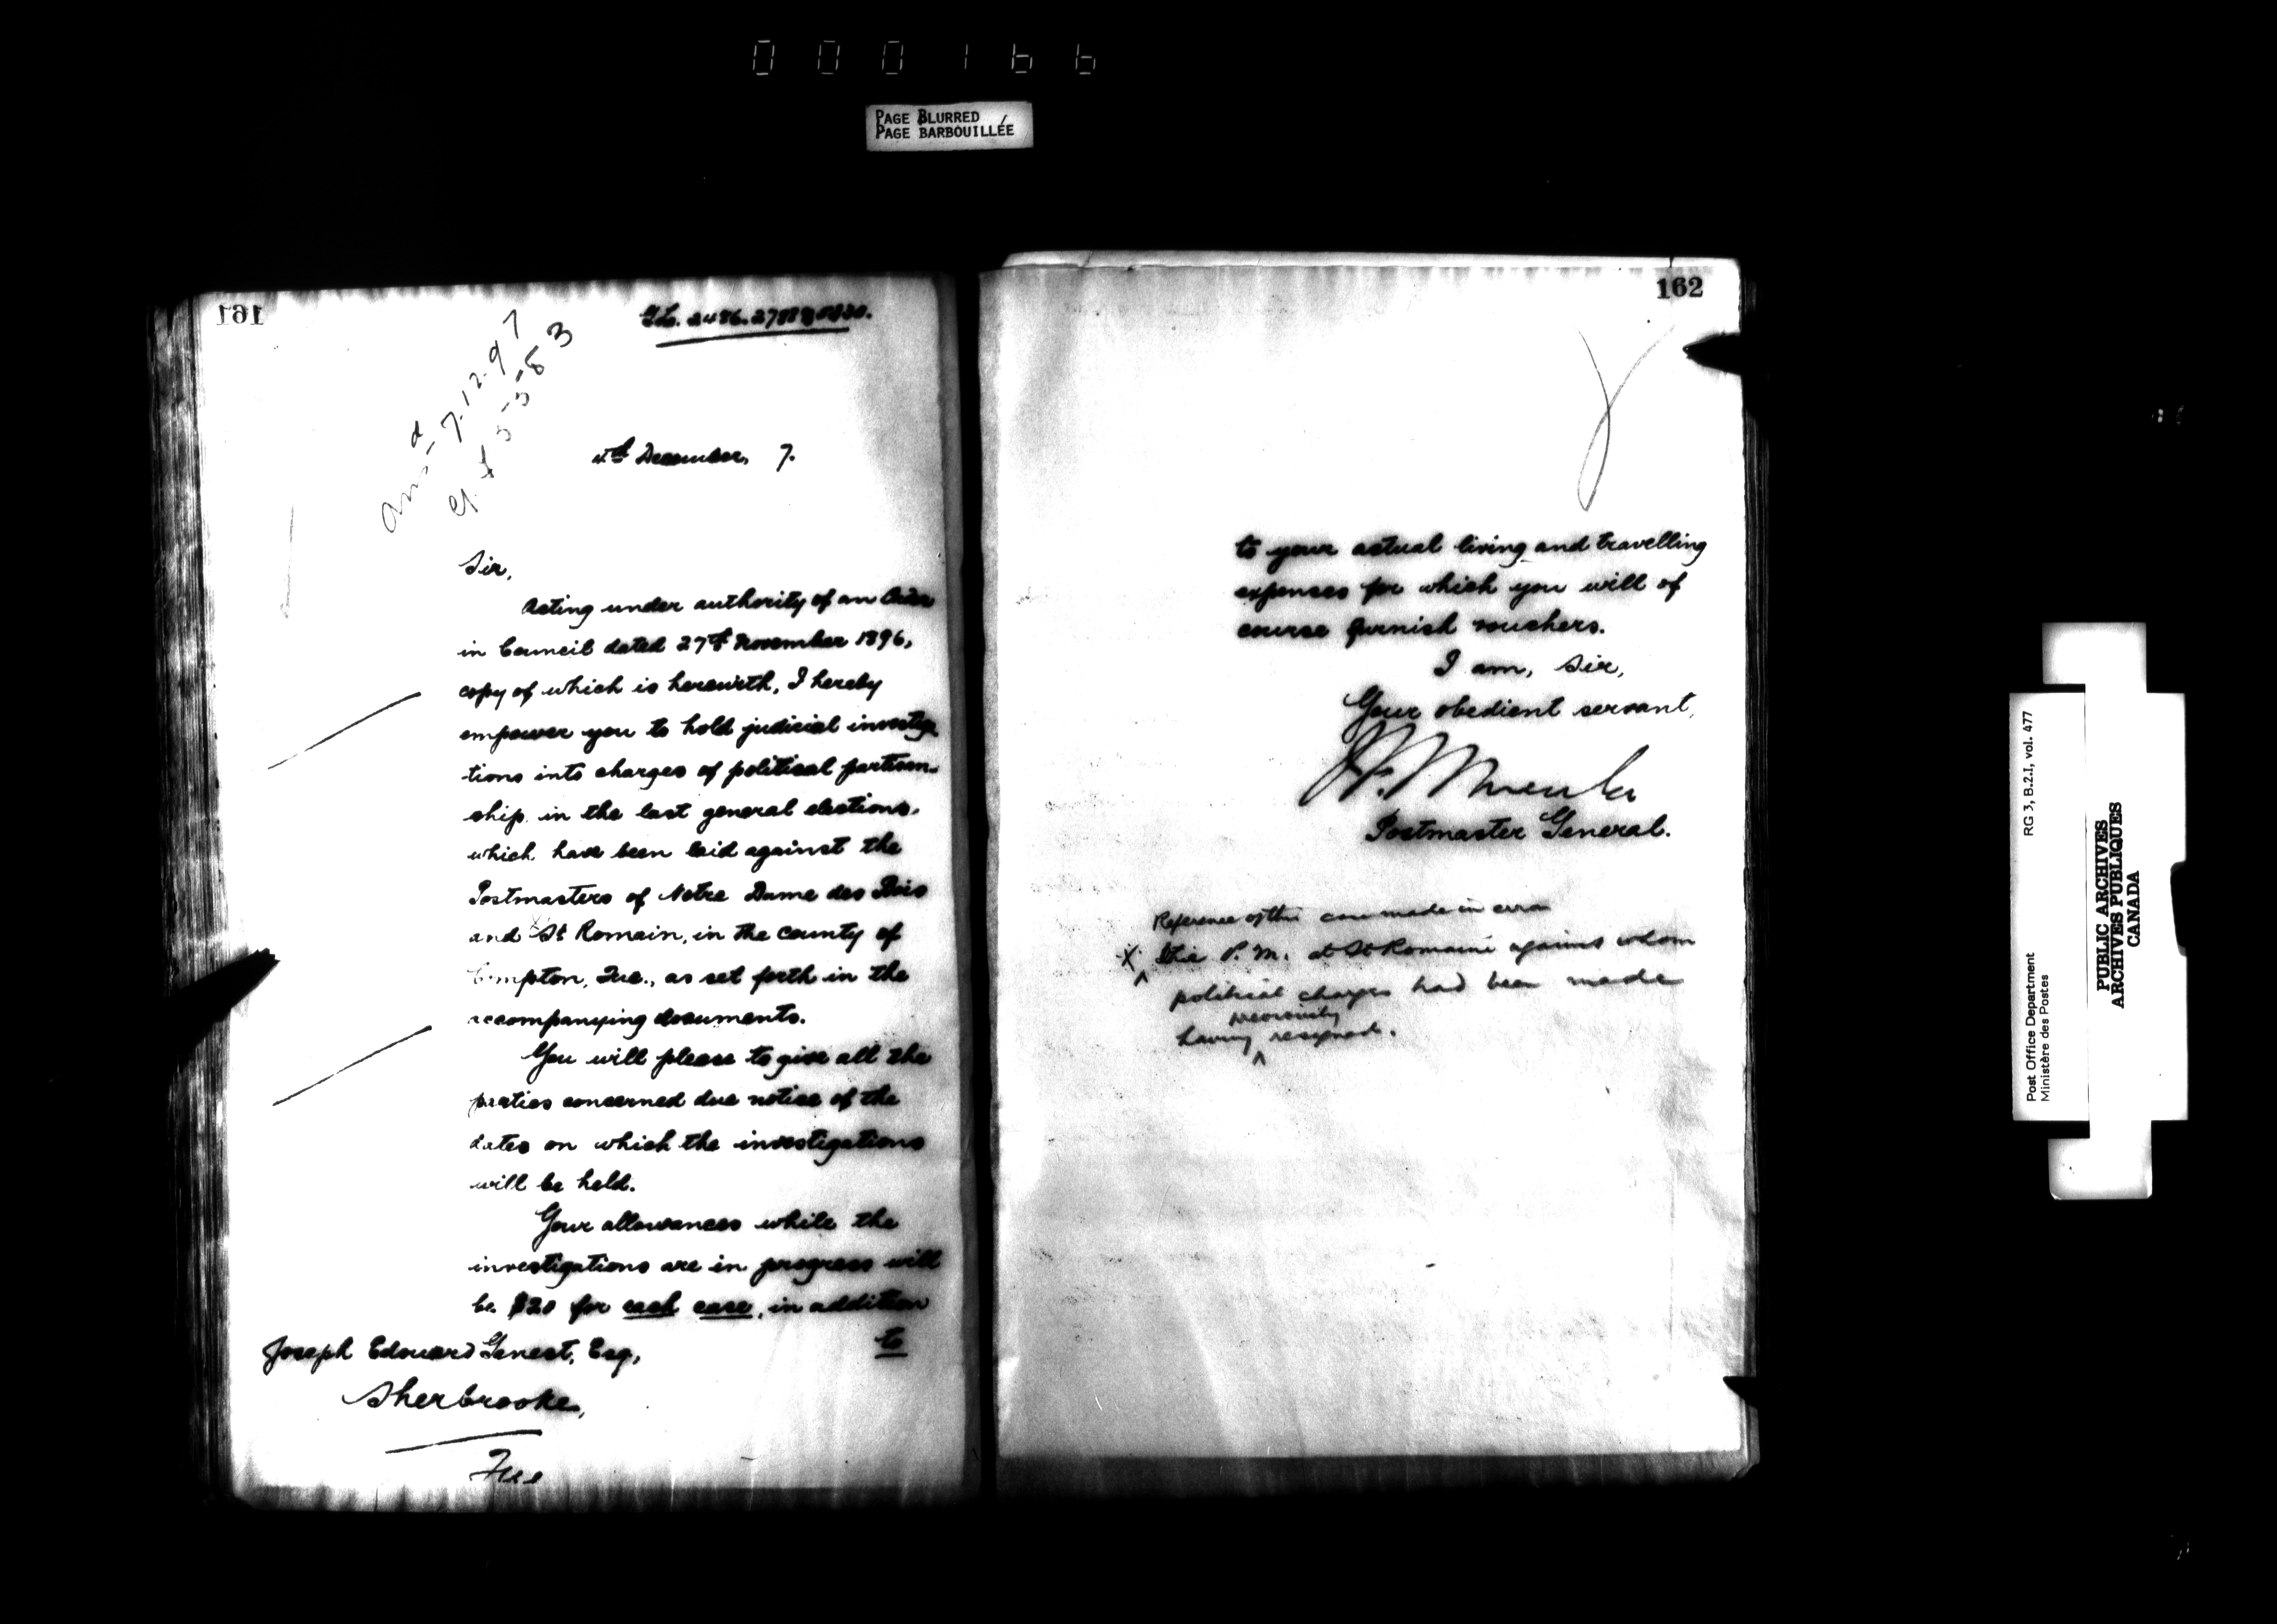 000166
PAGE BLURRED
PAGE BARBOUILLÉE
161
G.L. 2486.
Ansd 7.12.97
G.L 5583
4th December, 7.
Sir,
Acting under authority of an Order
in Council dated 27th November 1896,
copy of which is herewith, I hereby
empower you to hold judicial investiga
-tions into charges of political partisan-
ship, in the last general elections,
which have been laid against the
Postmasters of Notre Dame des Bois
and X St Romain, in the County of
Compton, Que., as set forth in the
accompanying documents.
You will please to give all the
parties concerned due notice of the
dates on which the investigations
will be held.
Your allowances while the
investigations are in progress will
be $20 for each case, in addition
to
Joseph Edouard Genest, Esq,
Sherbrooke,
Que
162
to your actual living and travelling
expenses for which you will of
course furnish vouchers.
I am, Sir,
Your obedient servant,
W. Mulock
Postmaster General.
Reference of this case made in error
X the P.M. at St Romain against whom
political charges had been made
having previously resigned.
Post Office Department
Ministère des Postes
RG 3, B.2.I, vol. 477
PUBLIC ARCHIVES
ARCHIVES PUBLIQUES
CANADA